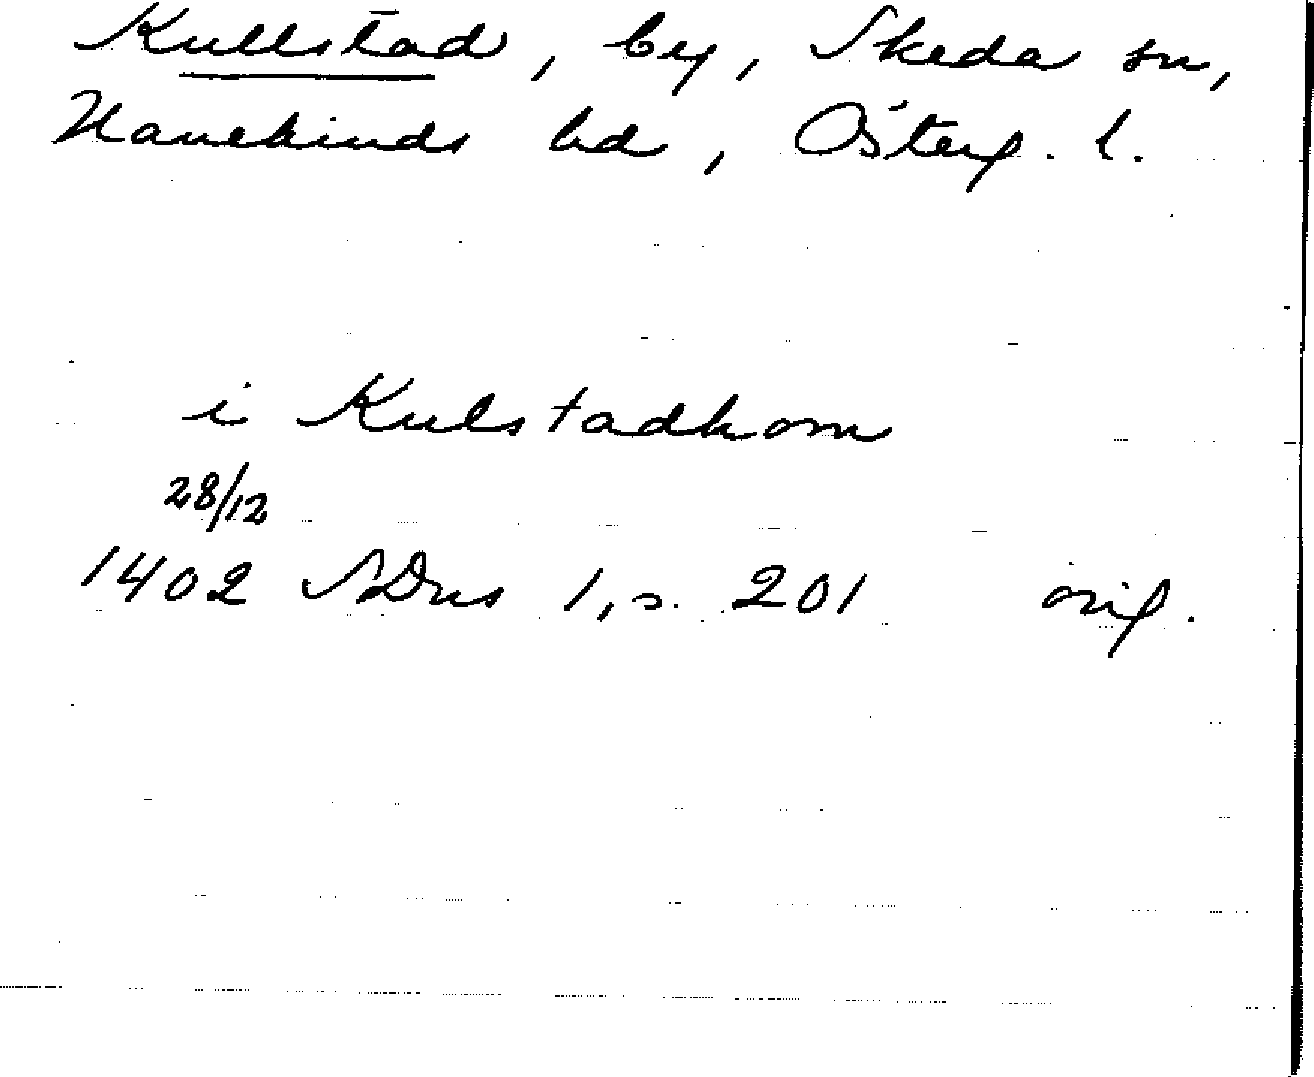 Kullstad, by, Skeda sn,
Hanekinds hd, Österg. l.
i Kulstadhom
28/12
1402 SDns 1, s. 201 orig.